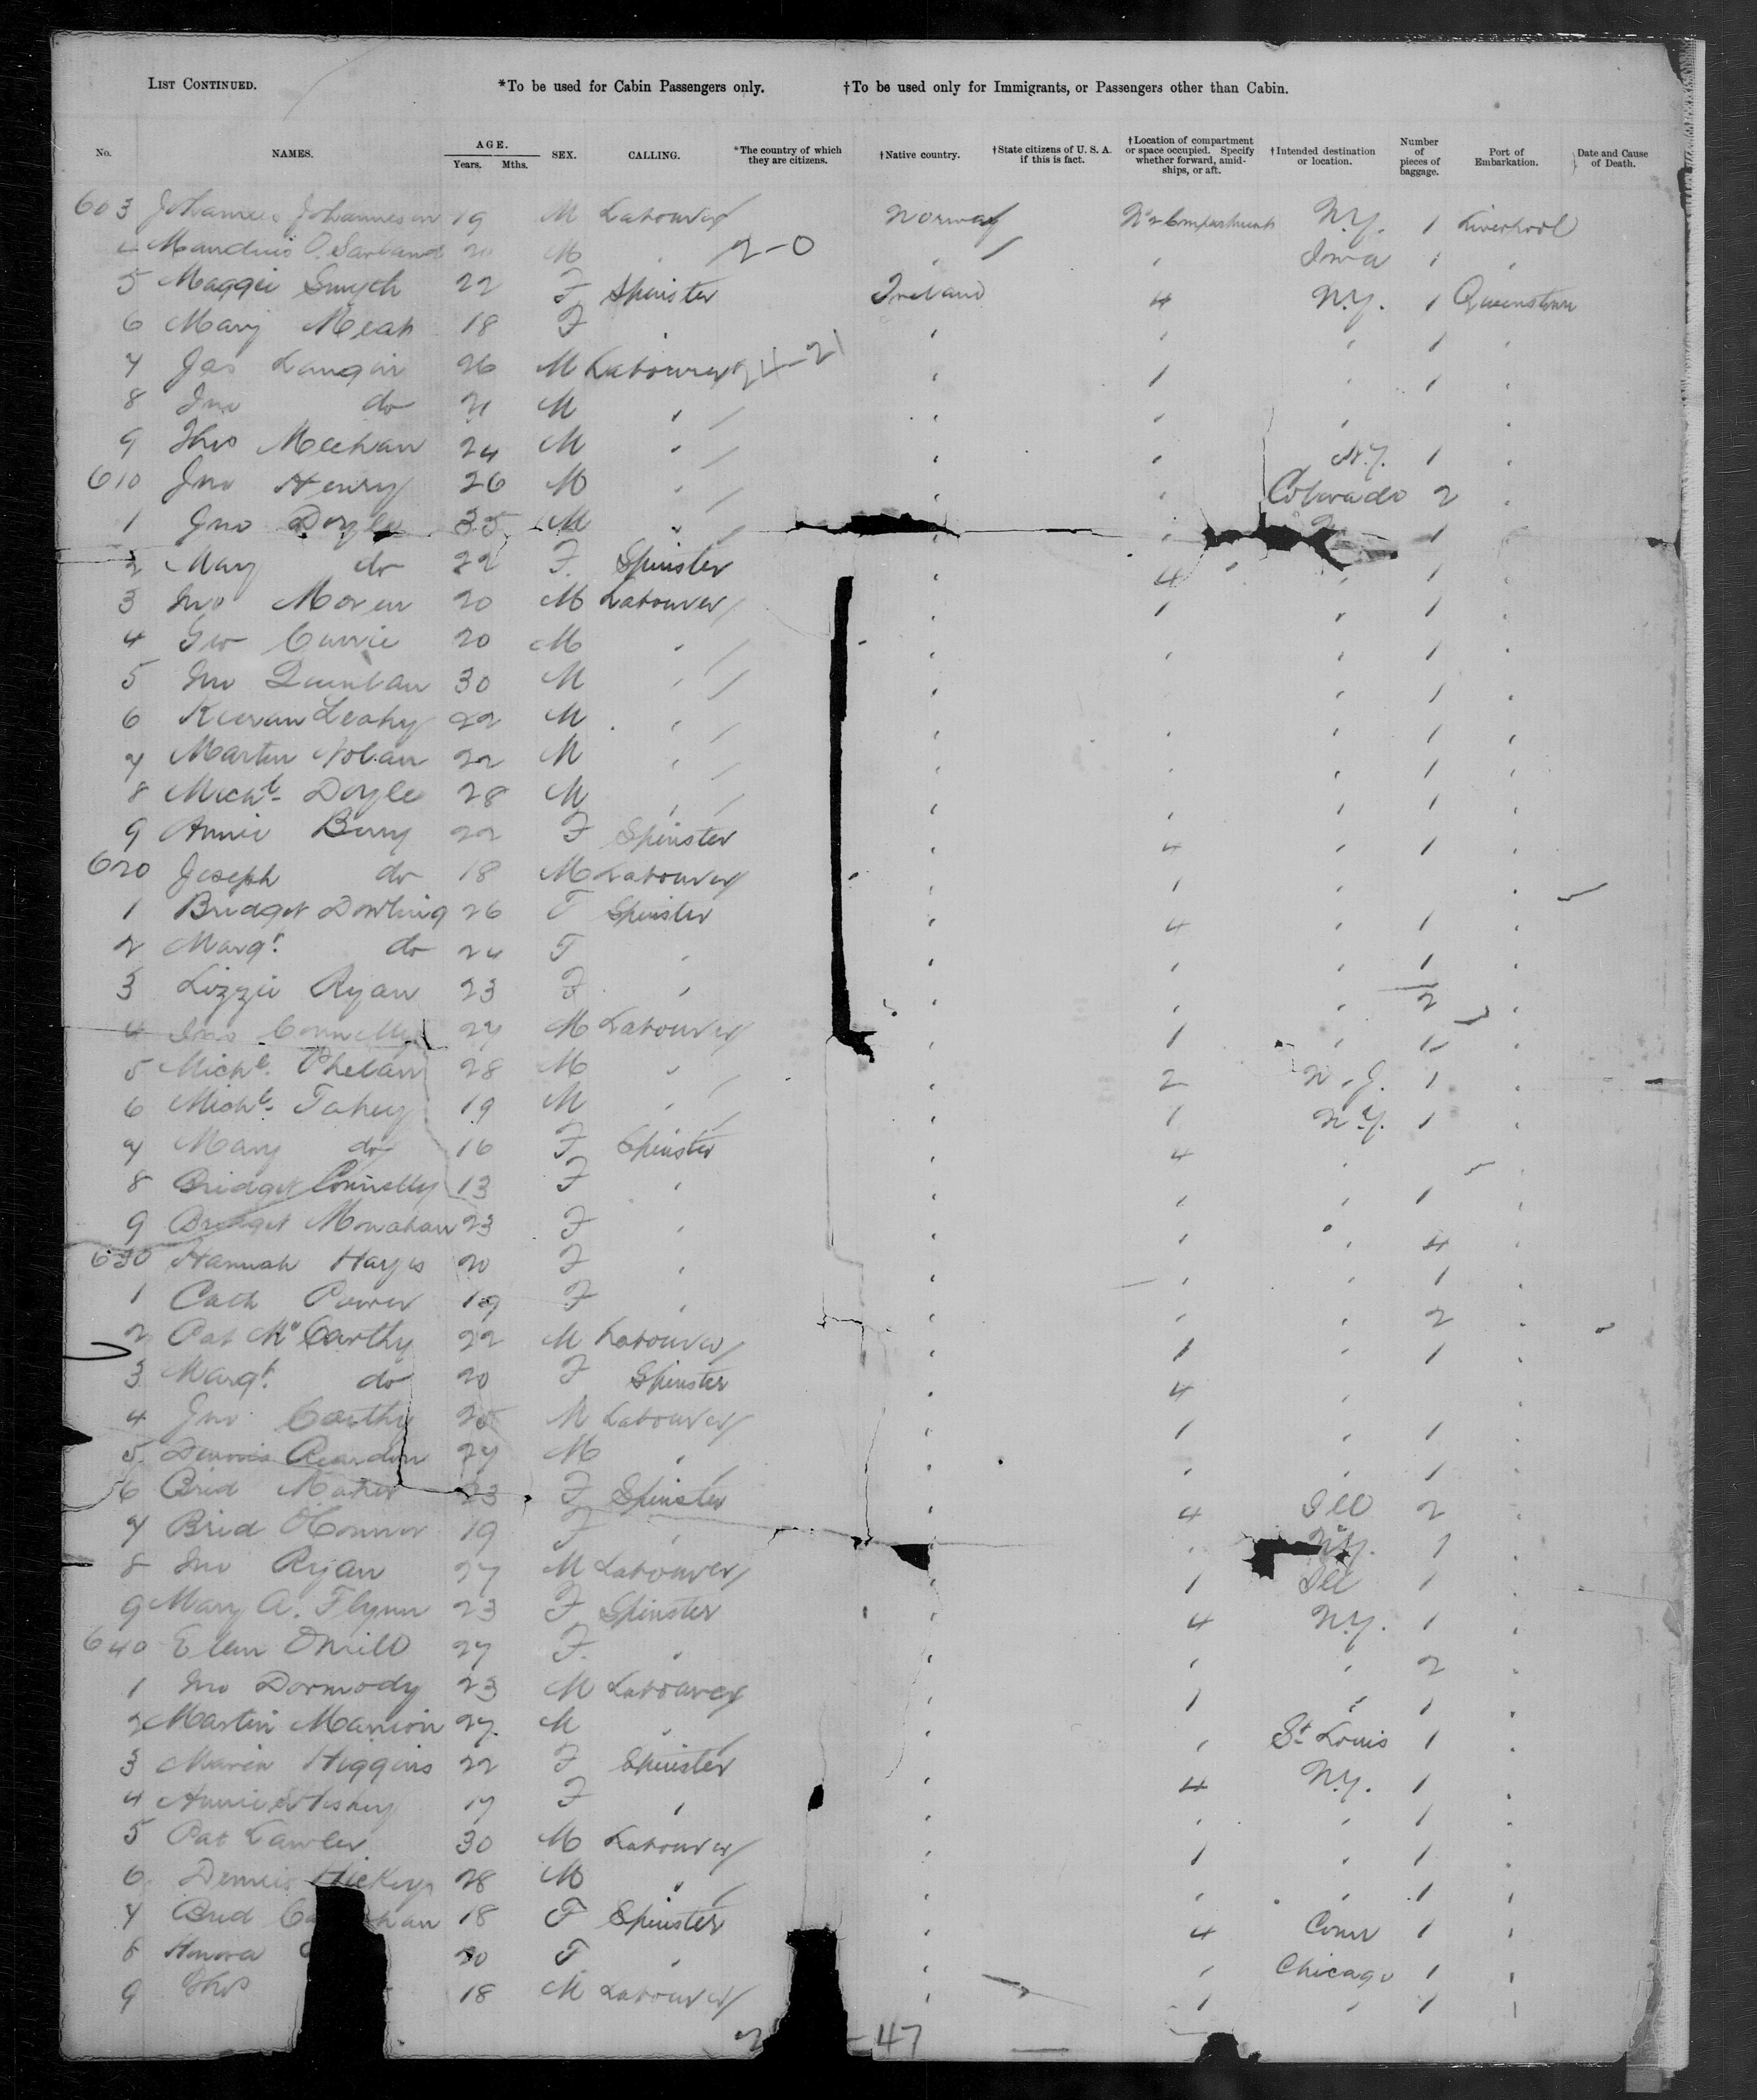 LIST CONTINUED. *To be used for Cabin Passengers only. †To be used only for Immigrants, or Passengers other than Cabin.
No. NAMES. AGE. Years. Mths. SEX. CALLING. *The country of which they are citizens. †Native country. †State citizens of U. S. A. if this is fact. †Location of compartment or space occupied. Specify whether forward, amidships, or aft. †Intended destination or location. Number of pieces of baggage. Port of Embarkation. Date and Cause of Death.
603 Johannes Johannesen 19 M Labourer Norway No 2 Compartment N.Y. 1 Liverpool
4 20 M " 2-0 " " Iowa 1 "
5 Maggie Smyth 22 F Spinster Ireland 4 N.Y. 1 Queenstown
6 Mary Meah 18 F " " " " 1 "
7 Jas Langin 26 M Labourer 21 " 1 " 1 "
8 Jno do 21 M " " " " "
9 Thos Meehan 24 M " " " N.Y. 1 "
610 Jno Henry 26 M " " " Colorado 2 "
1 Jno Doyle 35 M " " " 1 "
2 Mary do 22 F. Spinster " 4 " 1 "
3 Jno Moren 20 M Labourer " 1 " 1 "
4 Geo Currie 20 M " " " " 1 "
5 Jno Quinlan 30 M " " " 1 "
6 Kieran Leahy 22 M " " " " 1 "
7 Martin Nolan 22 M " " " " 1 "
8 Michl. Doyle 28 M " " " " 1 "
9 Annie Berry 22 F Spinster " 4 " 1 "
620 Joseph do 18 M Labourer " 1 " "
1 Bridget Dowling 26 F Spinster " 4 " 1 "
2 Margt. do 24 F " " " " 1 "
3 Lizzie Ryan 23 F " " " " 2 "
4 Jno Connelly 27 M Labourer " 1 " 1 "
5 Michl. Phelan 28 M " " 2 N.J. 1 "
6 Michl. Fahey 19 M " " 1 N.Y. 1 "
7 Mary do 16 F Spinster " 4 " "
8 Bridget Connelly 13 F " " " " 1 "
9 Bridget Monahan 23 F " " " " 4 "
630 Hannah Hayes 20 F " " " " 1 "
1 Cath Power 19 F " " " " 2 "
2 Pat McCarthy 22 M Labourer " 1 " 1 "
3 Margt. do 20 F Spinster " 4 "
4 Jno Carthy 25 M Labourer " 1 " 1 "
5 Dennis Reardon 27 M " " " " 1 "
6 Brid Maher 23 F Spinster " 4 Ill 2 "
7 Brid O'Connor 19 F " " " N.Y. 1 "
8 Jno Ryan 27 M Labourer " 1 Ill 1 "
9 Mary A. Flynn 23 F Spinster " 4 N.Y. 1 "
640 Ellen O'Neill 27 F. " " " " 2 "
1 Jno Dormody 23 M Labourer " 1 " 1 "
2 Martin Mannion 27 M " " " St Louis 1 "
3 Maria Higgins 22 F Spinster " 4 N.Y. 1 "
4 Annie 17 F " " " " 1 "
5 Pat Lawler 30 M Labourer " 1 " 1 "
6 Dennis Hickey 28 M " " " " 1 "
7 Brid 18 F Spinster " 4 Conn 1 "
8 Honora 20 F " " " Chicago 1 "
9 Thos 18 M Labourer " 1 " 1 "
47